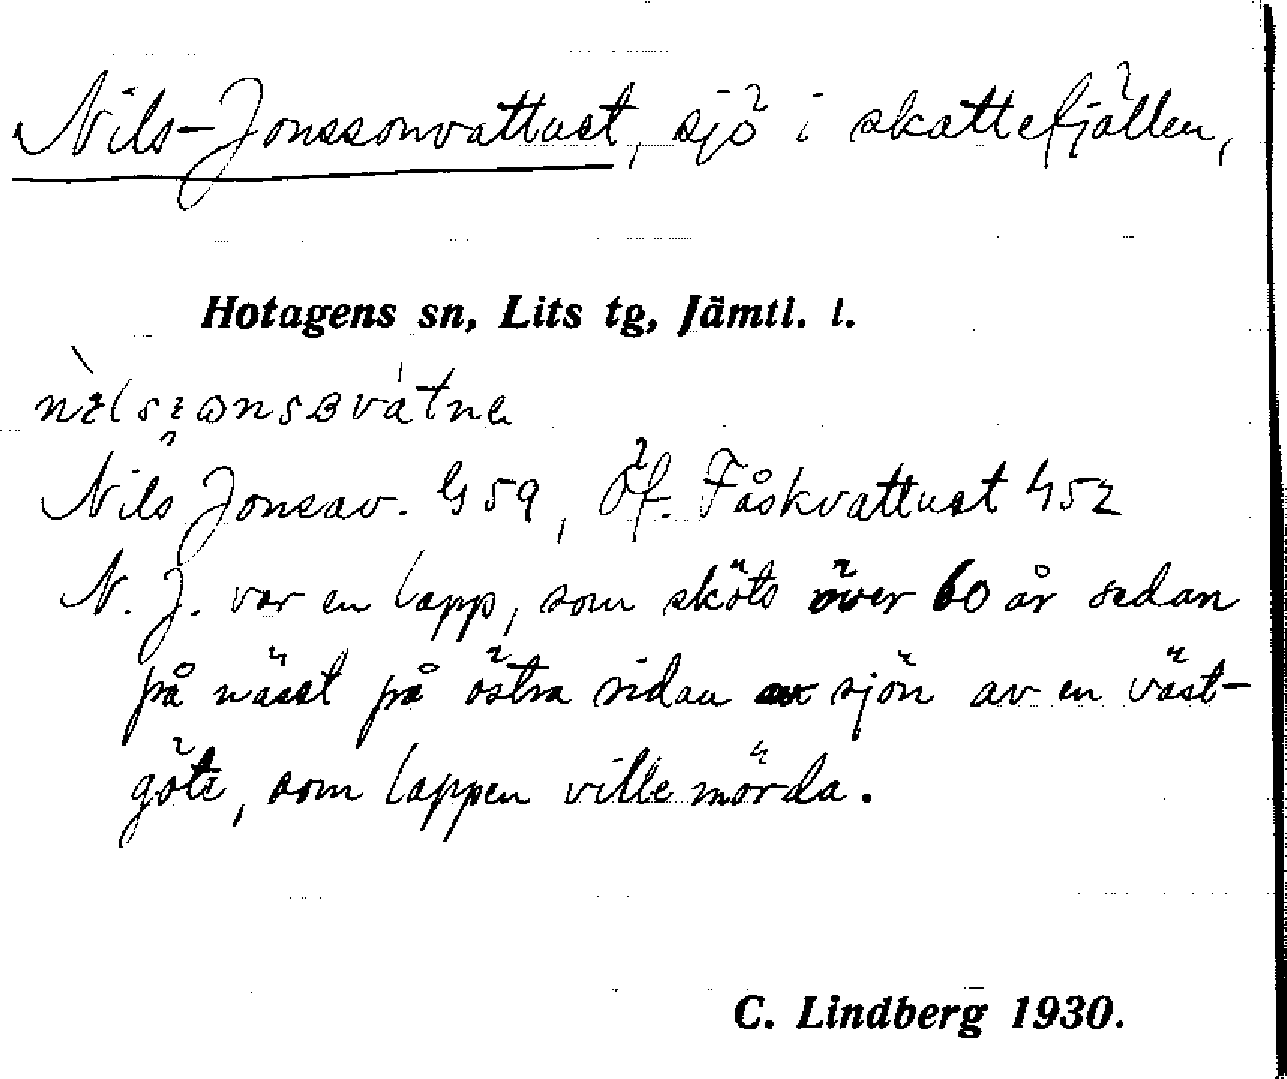 Nils-Jonssonvattnet, sjö i skattefjällen,
Hotagens sn, Lits tg, Jämtl. l.
Nils Jonsav. G 59, Öf. Fåskvattnet 452
N. J. var en lapp, som sköts över 60 år sedan
på näset på östra sidan av sjön av en väst-
göte, som lappen ville mörda.
C. Lindberg 1930.